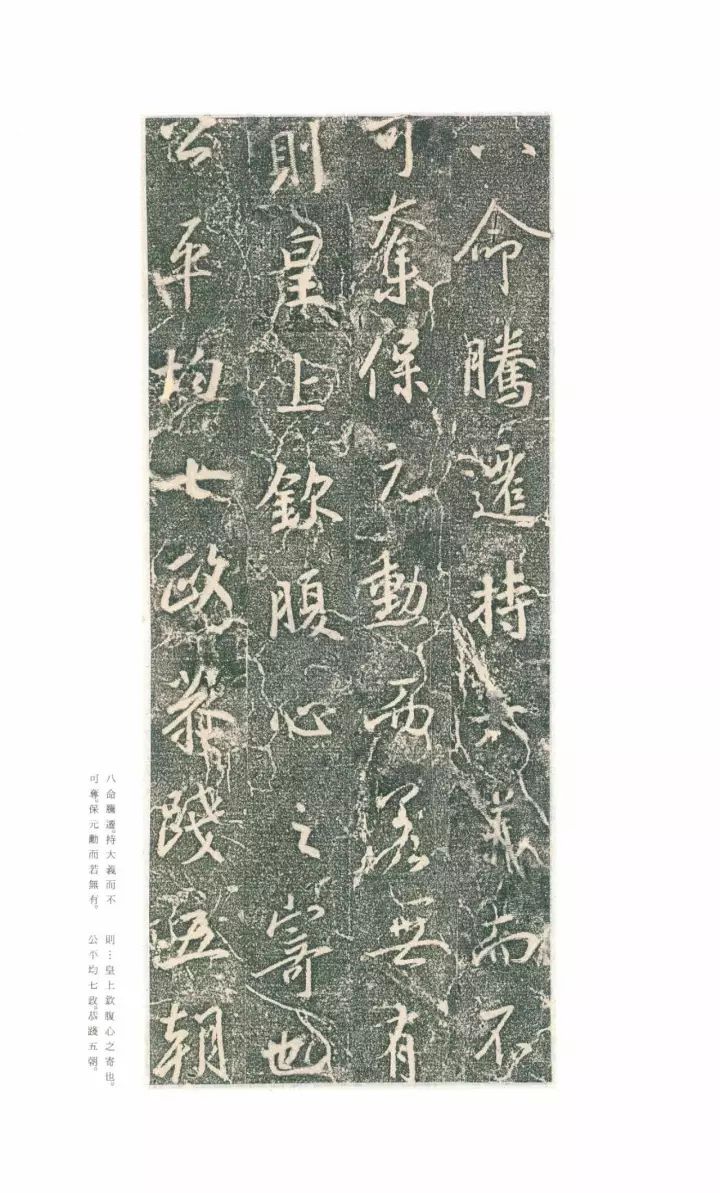 八命騰遷持大義而不
可奪保元勳而若無有
則皇上欽腹心之寄也
公平均七政恭踐五朝
八命騰遷。持大義而不
可奪。保元勳而若無有。
則…皇上欽腹心之寄也。
公平均七政。恭踐五朝。